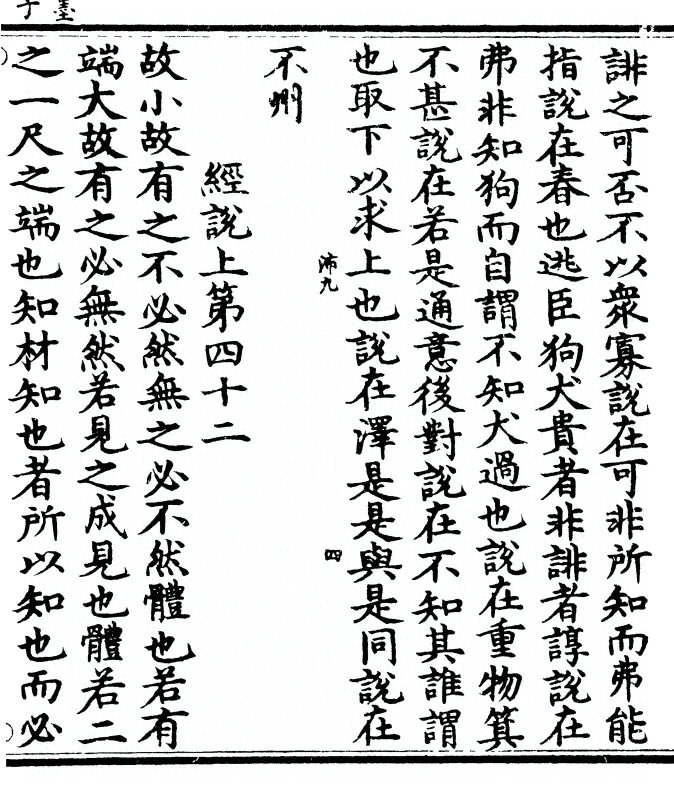 墨子
誹之可否不以眾寡說在可非所知而弗能
指說在春也逃臣狗犬貴者非誹者諄說在
弗非知狗而自謂不知犬過也說在重物箕
不甚說在若是通意後對說在不知其誰謂
也取下以求上也說在澤是是與是同說在
沛九
四
不州
經說上第四十二
故小故有之不必然無之必不然體也若有
端大故有之必無然若見之成見也體若二
之一尺之端也知材知也者所以知也而必